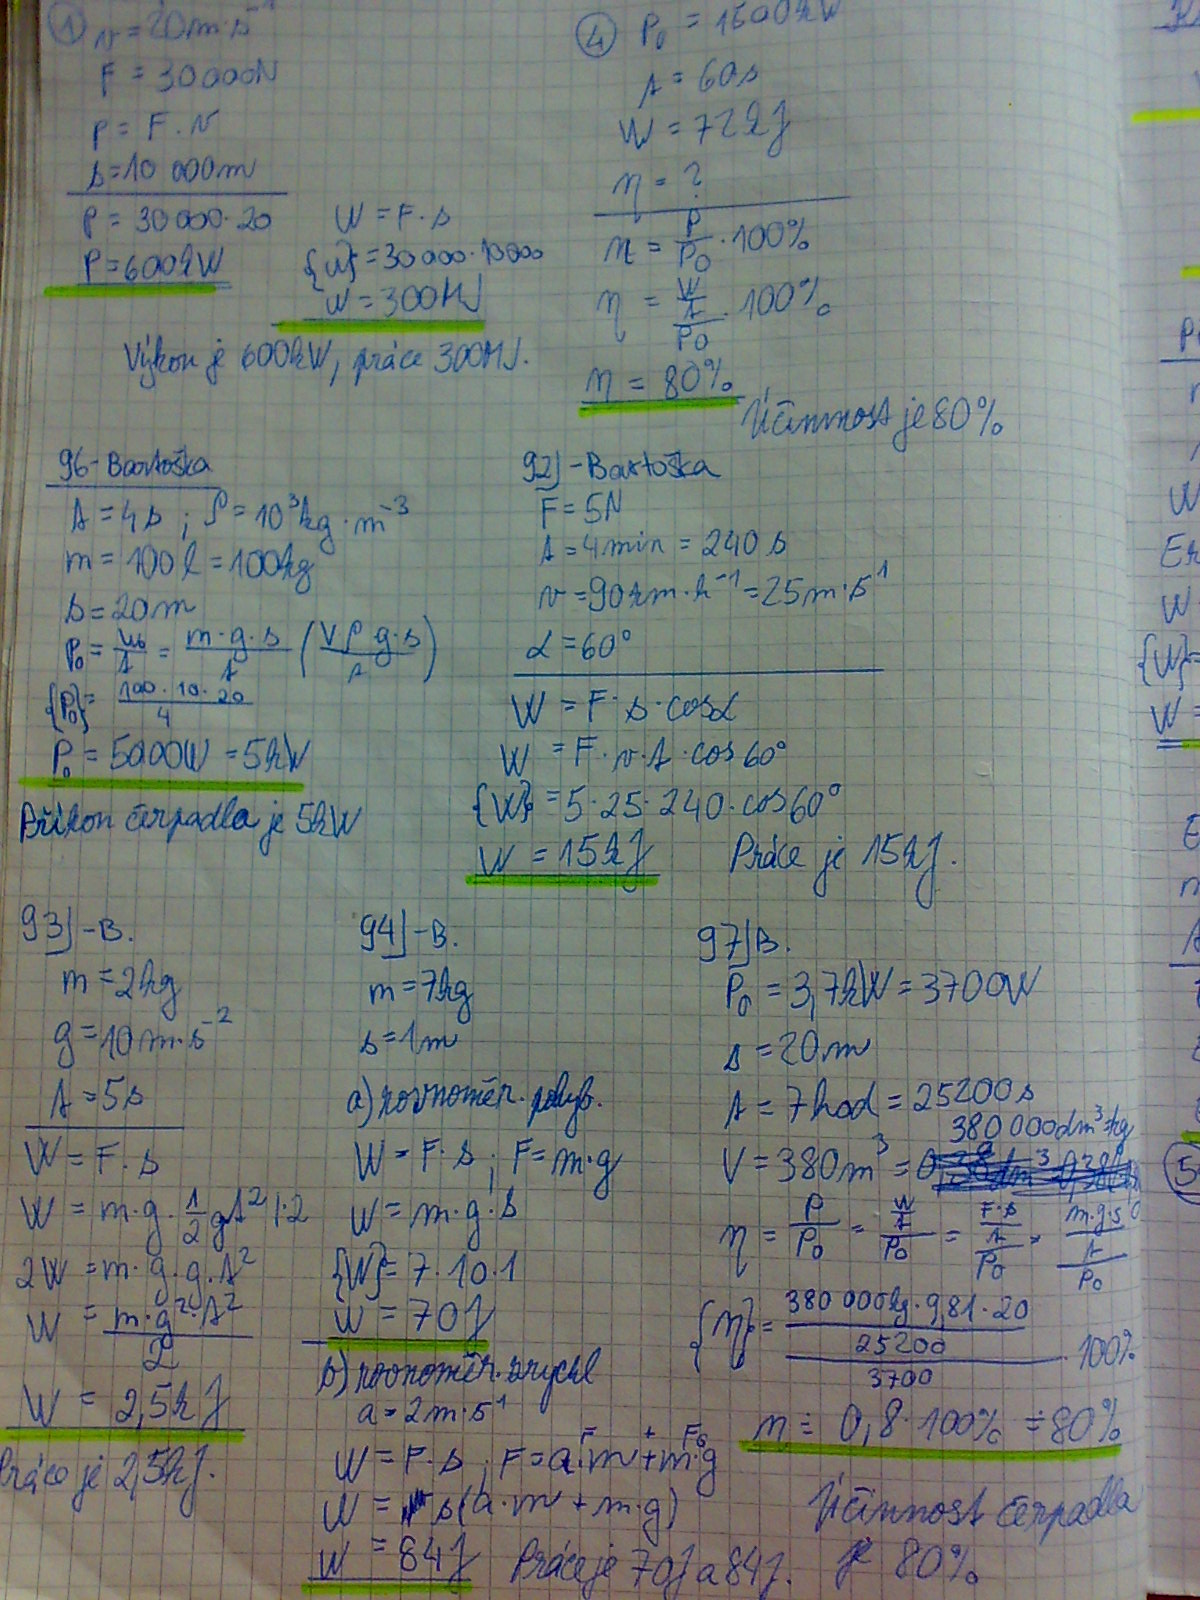 ① v = 20m·s⁻¹
F = 30000N
P = F·v
s = 10 000m
P = 30 000·20
P = 600kW
W = F·s
{W} = 30000·10000
W = 300MJ
Výkon je 600kW, práce 300MJ.
④ P₀ = 1500kW
t = 60s
W = 72kJ
η = ?
η = P/P₀ ·100%
η = (W/t)/P₀ ·100%
η = 80%
Účinnost je 80%
96-Bartoška
t = 4s ; ρ = 10³kg·m⁻³
m = 100l = 100kg
s = 20m
P₀ = W₀/t = m·g·s/t (Vρg·s/t)
{P₀} = 100·10·20/4
P₀ = 5000W = 5kW
Příkon čerpadla je 5kW
92)-Bartoška
F = 5N
t = 4min = 240s
v = 90km·h⁻¹ = 25m·s⁻¹
α = 60°
W = F·s·cosα
W = F·v·t·cos60°
{W} = 5·25·240·cos60°
W = 15kJ
Práce je 15kJ.
93)-B.
m = 2kg
g = 10m·s⁻²
t = 5s
W = F·s
W = m·g·½gt² |·2
2W = m·g·g·t²
W = m·g²·t²/2
W = 2,5kJ
Práce je 2,5kJ.
94)-B.
m = 7kg
s = 1m
a) rovnoměr. pohyb.
W = F·s ; F = m·g
W = m·g·s
{W} = 7·10·1
W = 70J
b) rovnoměr. zrychl
a = 2m·s⁻¹
F + FG
W = F·s ; F = a·m + m·g
W = s(a·m + m·g)
W = 84J
Práce je 70J a 84J.
97)B.
P₀ = 3,7kW = 3700W
s = 20m
t = 7hod = 25200s
380 000dm³=kg
V = 380m³ =
η = P/P₀ = (W/t)/P₀ = (F·s/t)/P₀ = (m·g·s/t)/P₀
{η} = (380 000kg·9,81·20/25200)/3700 ·100%
η = 0,8·100% ≐ 80%
Účinnost čerpadla
je 80%
W
Er
W
{W}=
W =
⑤